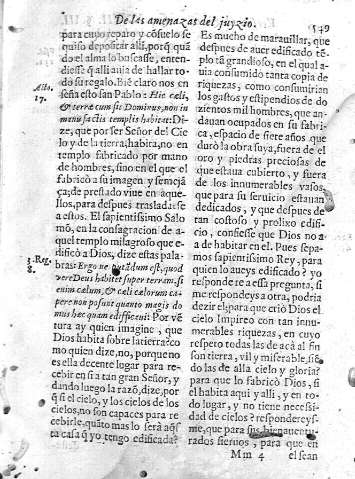 De las amenazas del juyzio.
549
para cuyo reparo y cõsuelo se
quiso depositar allí, porq̃ quã
do el alma lo buscasse, enten-
diesse q̃ allí auia de hallar to-
do su regalo. Biẽ claro nos en
seña esto san Pablo: Hic cæli,
& terræ cum sit Dominus, non in
manu factis templis habitat: Di-
ze, que por ser Señor del Cie
lo y de la tierra; habita, no en
templo fabricado por mano
de hombres, sino en el que el
fabricò a su imagen y semejã
ça; de prestado viue en aque-
llos, para despues trasladarse
a estos. El sapientissimo Salo
mõ, en la consagracion de a-
quel templo milagroso que e-
dificò a Dios, dize estas pala-
bras: Ergo ne putãdum est, quod
vere Deus habitet super terram, si
enim cælum, & cæli cælorum ca-
pere non possunt quanto magis do
mus hæc quam edificaui: Por vẽ
tura ay quien imagine, que
Dios habita sobre la tierra? co
mo quien dize, no, porque no
es ella decente lugar para re-
cebir en si a tan gran Señor, y
dando luego la razõ, dize, por
q̃ si el cielo, y los cielos de los
cielos, no son capaces para re
cebirle, quãto mas lo será aq̃s
ta casa q̃ yo tengo edificada?
Act.
17.
3. Reg.
8.
Es mucho de marauillar, que
despues de auer edificado tẽ-
plo tã grandioso, en el qual a-
uia consumido tanta copia de
riquezas, como consumirian
los gastos y estipendios de do
zientos mil hombres, que an-
dauan ocupados en su fabri-
ca, espacio de siete años que
durò la obra suya, fuera de el
oro y piedras preciosas de
que estaua cubierto, y fuera
de los innumerables vasos,
que para su seruicio estauan
dedicados, y que despues de
tan costoso y prolixo edifi-
cio, confiesse que Dios no a-
a de habitar en el. Pues sepa-
mos sapientissimo Rey, para
quien lo aueys edificado? yo
responderè a essa pregunta, si
me respondeys a otra, podria
dezir el; para que criò Dios el
cielo Impireo con tan innu-
merables riquezas, en cuyo
respeto todas las de acà al fin
son tierra, vil y miserable, siẽ
do las de alla cielo y gloria?
para que lo fabricò Dios, si
el habita aqui y allí, y en to-
do lugar, y no tiene necessi-
dad de cielos? respondereys-
me, que para sus bienauentu-
rados sieruos, para que en
Mm 4
el sean